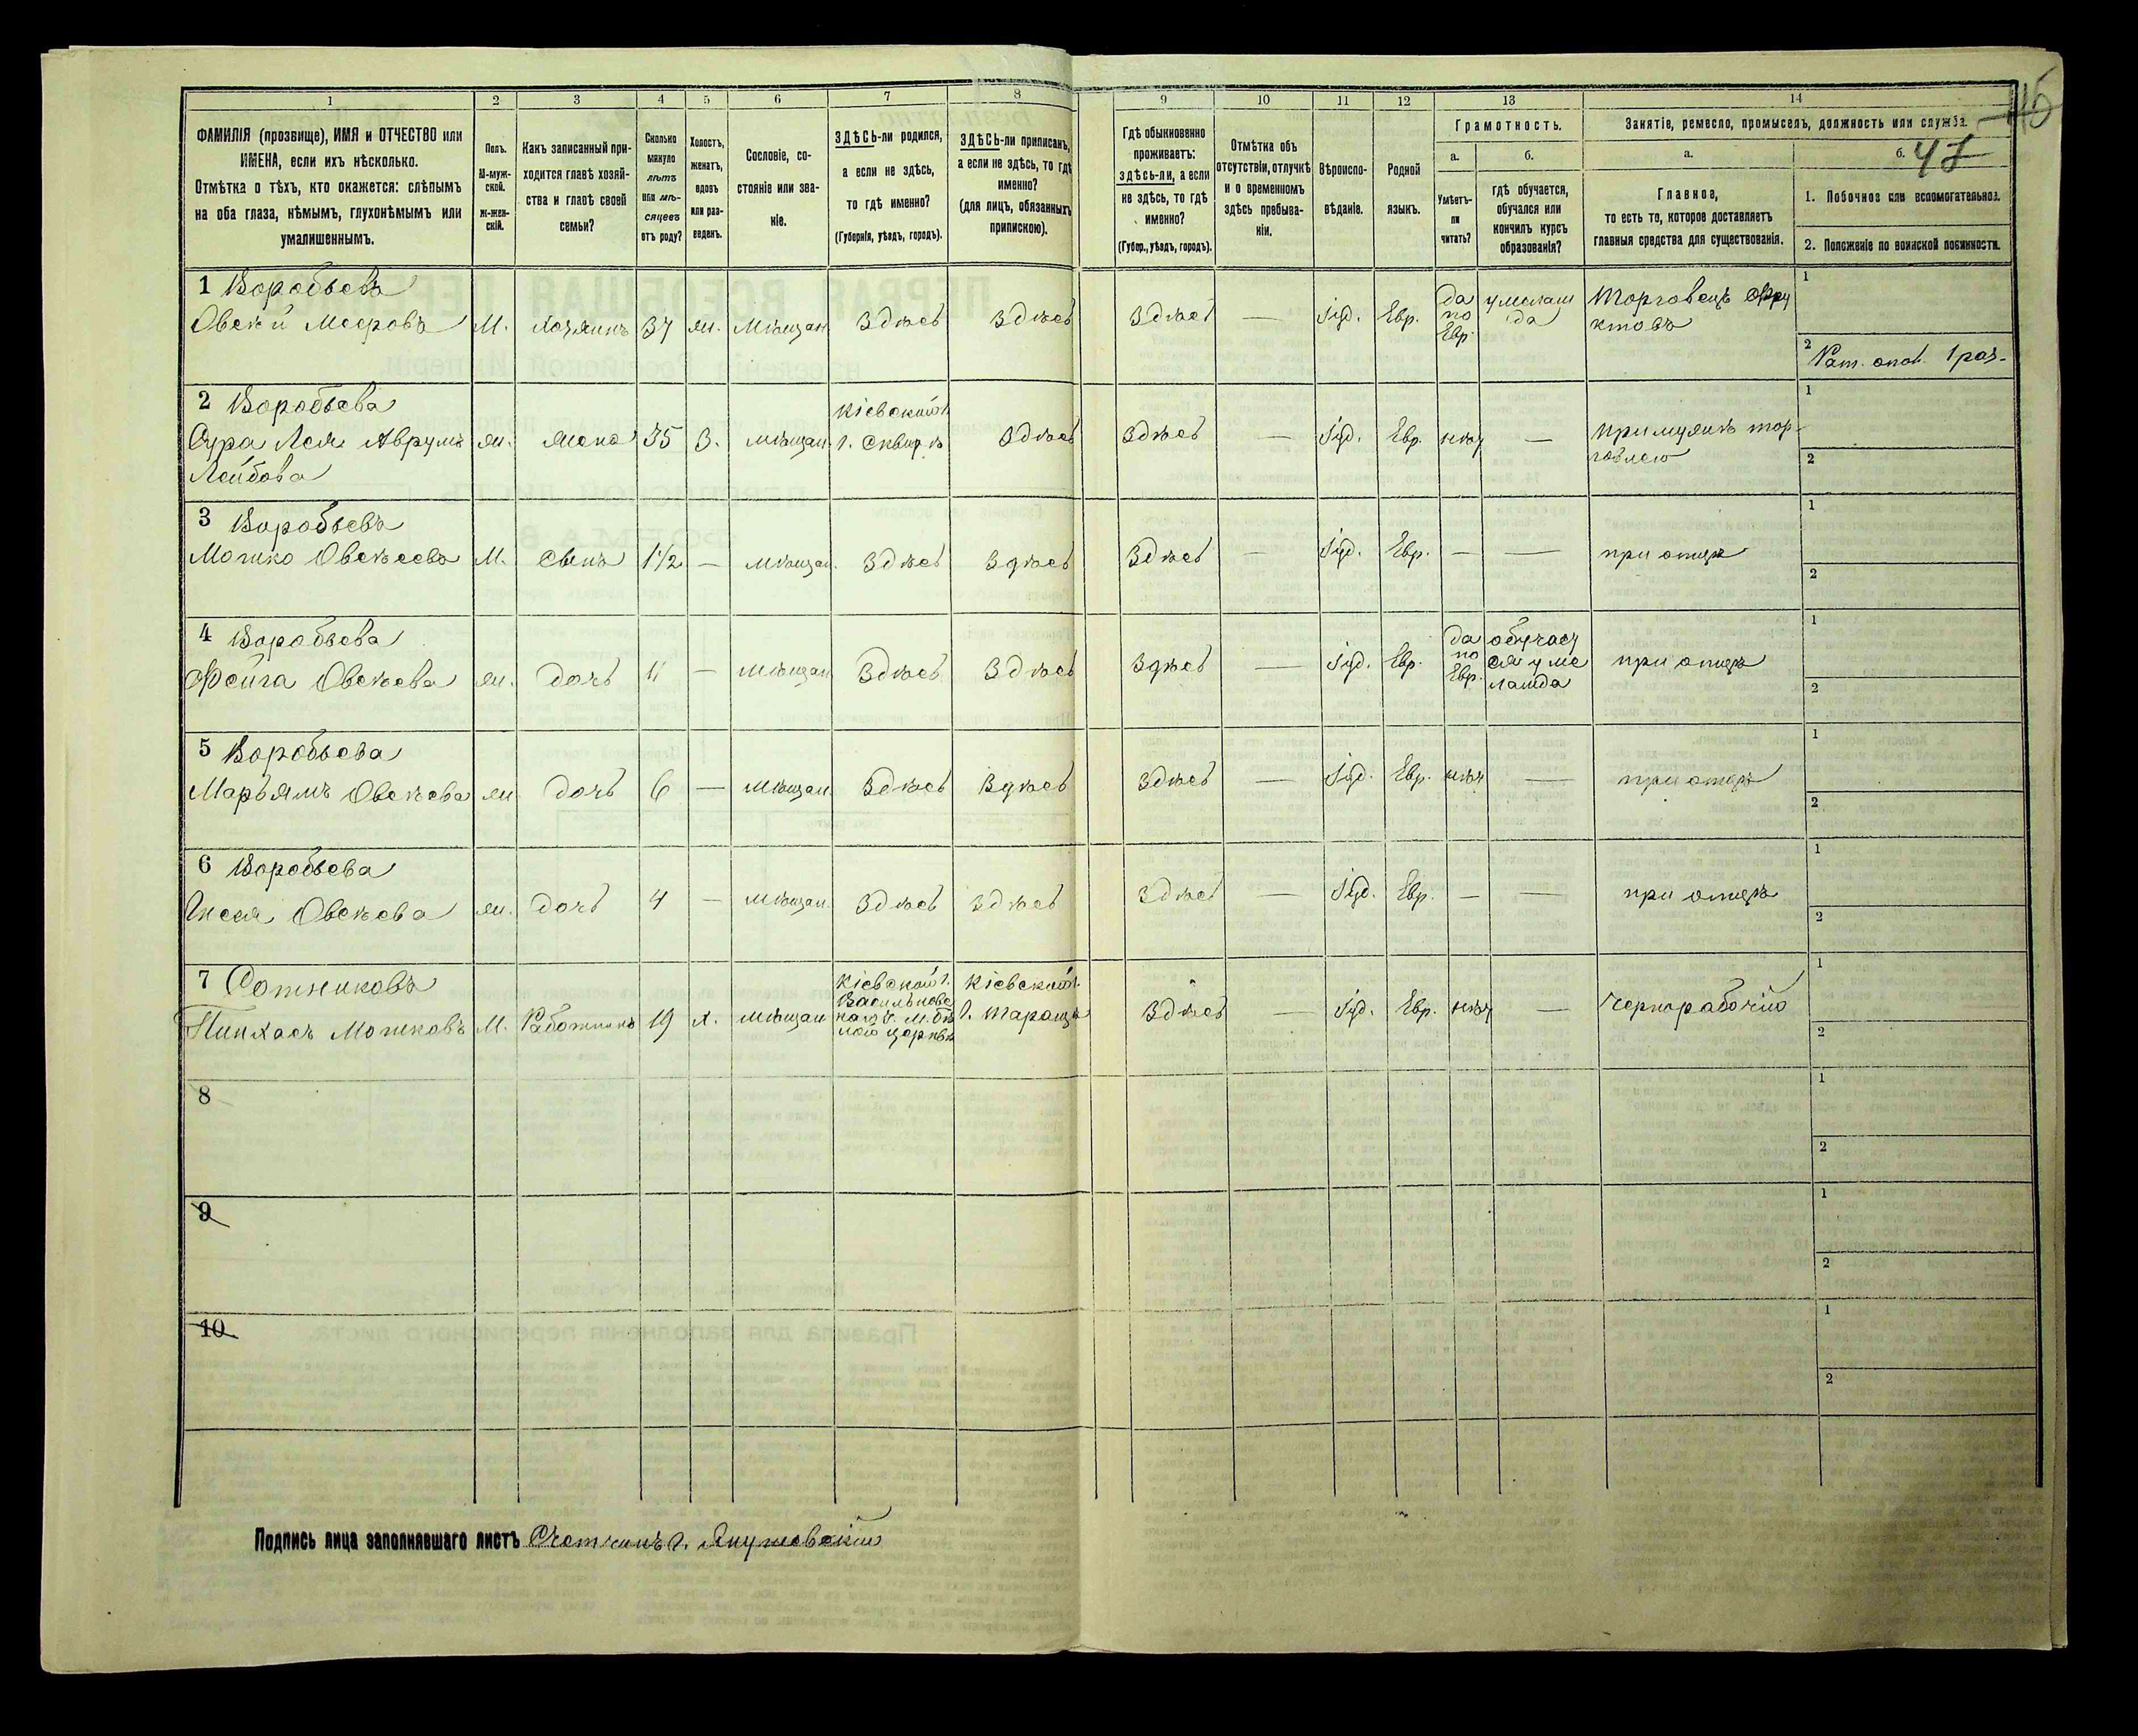 1 2 3 4 5 6 7 8 9 10 11 12 13 14
46
47
ФАМИЛІЯ (прозвище), ИМЯ и ОТЧЕСТВО или
ИМЕНА, если ихъ нѣсколько.
Отмѣтка о тѣхъ, кто окажется: слѣпымъ
на оба глаза, нѣмымъ, глухонѣмымъ или
умалишеннымъ.
Полъ.
М-муж-
ской.
Ж-жен-
скій.
Какъ записанный при-
ходится главѣ хозяй-
ства и главѣ своей
семьи?
Сколько
минуло
лѣтъ
или мѣ-
сяцевъ
отъ роду?
Холостъ,
женатъ,
вдовъ
или раз-
веденъ.
Сословіе, со-
стояніе или зва-
ніе.
ЗДѢСЬ-ли родился,
а если не здѣсь,
то гдѣ именно?
(Губернія, уѣздъ, городъ).
ЗДѢСЬ-ли приписанъ,
а если не здѣсь, то гдѣ
именно?
(для лицъ, обязанныхъ
припискою).
Гдѣ обыкновенно
проживаетъ:
здѣсь-ли, а если
не здѣсь, то гдѣ
именно?
(Губер., уѣздъ, городъ).
Отмѣтка объ
отсутствіи, отлучкѣ
и о временномъ
здѣсь пребыва-
ніи.
Вѣроиспо-
вѣданіе.
Родной
языкъ.
Грамотность.
а.
Умѣетъ-
ли
читать?
б.
гдѣ обучается,
обучался или
кончилъ курсъ
образованія?
Занятіе, ремесло, промыселъ, должность или служба.
а.
Главное,
то есть то, которое доставляетъ
главныя средства для существованія.
б.
1. Побочное или вспомогательное.
2. Положеніе по воинской повинности.
1 Воробьевъ
Овсѣй Мееровъ М. хозяинъ 37 ж. мѣщан. Здѣсь Здѣсь Здѣсь — Іуд. Евр. да по Евр. у мелам да Торговецъ фру
ктовъ
1
2 Рат. опол. 1 раз.
2 Воробьева
Сура Лея Аврумъ ж. жена 35 З. мѣщан. Кіевской г. г. Сквирѣ Здѣсь Здѣсь — Іуд. Евр. нѣт — при мужѣ тор-
Лейбова
говлею
1
2
3 Воробьевъ
Мошко Овсѣевъ М. сынъ 1½ — мѣщан. Здѣсь Здѣсь Здѣсь — Іуд. Евр. — — при отцѣ
1
2
4 Воробьева
Фейга Овсѣева ж. дочь 11 — мѣщан. Здѣсь Здѣсь Здѣсь — Іуд. Евр. да по Евр. обучает ся у ме ламда при отцѣ
1
2
5 Воробьева
Марьямъ Овсѣева ж. дочь 6 — мѣщан. Здѣсь Здѣсь Здѣсь — Іуд. Евр. нѣт — при отцѣ
1
2
6 Воробьева
Овсѣева ж. дочь 4 — мѣщан. Здѣсь Здѣсь Здѣсь — Іуд. Евр. — — при отцѣ
1
2
7 Сотниковъ
Пинхасъ Мошковъ М. Работникъ 19 х. мѣщан Кіевской г. Васильковс каго у. м. Бѣ лой церкви Кіевской г. г. Тараща Здѣсь — Іуд. Евр. нѣт — Чернорабочій
1
2
8
1
2
9
1
2
10
1
2
Подпись лица заполнявшаго листъ Счетчикъ